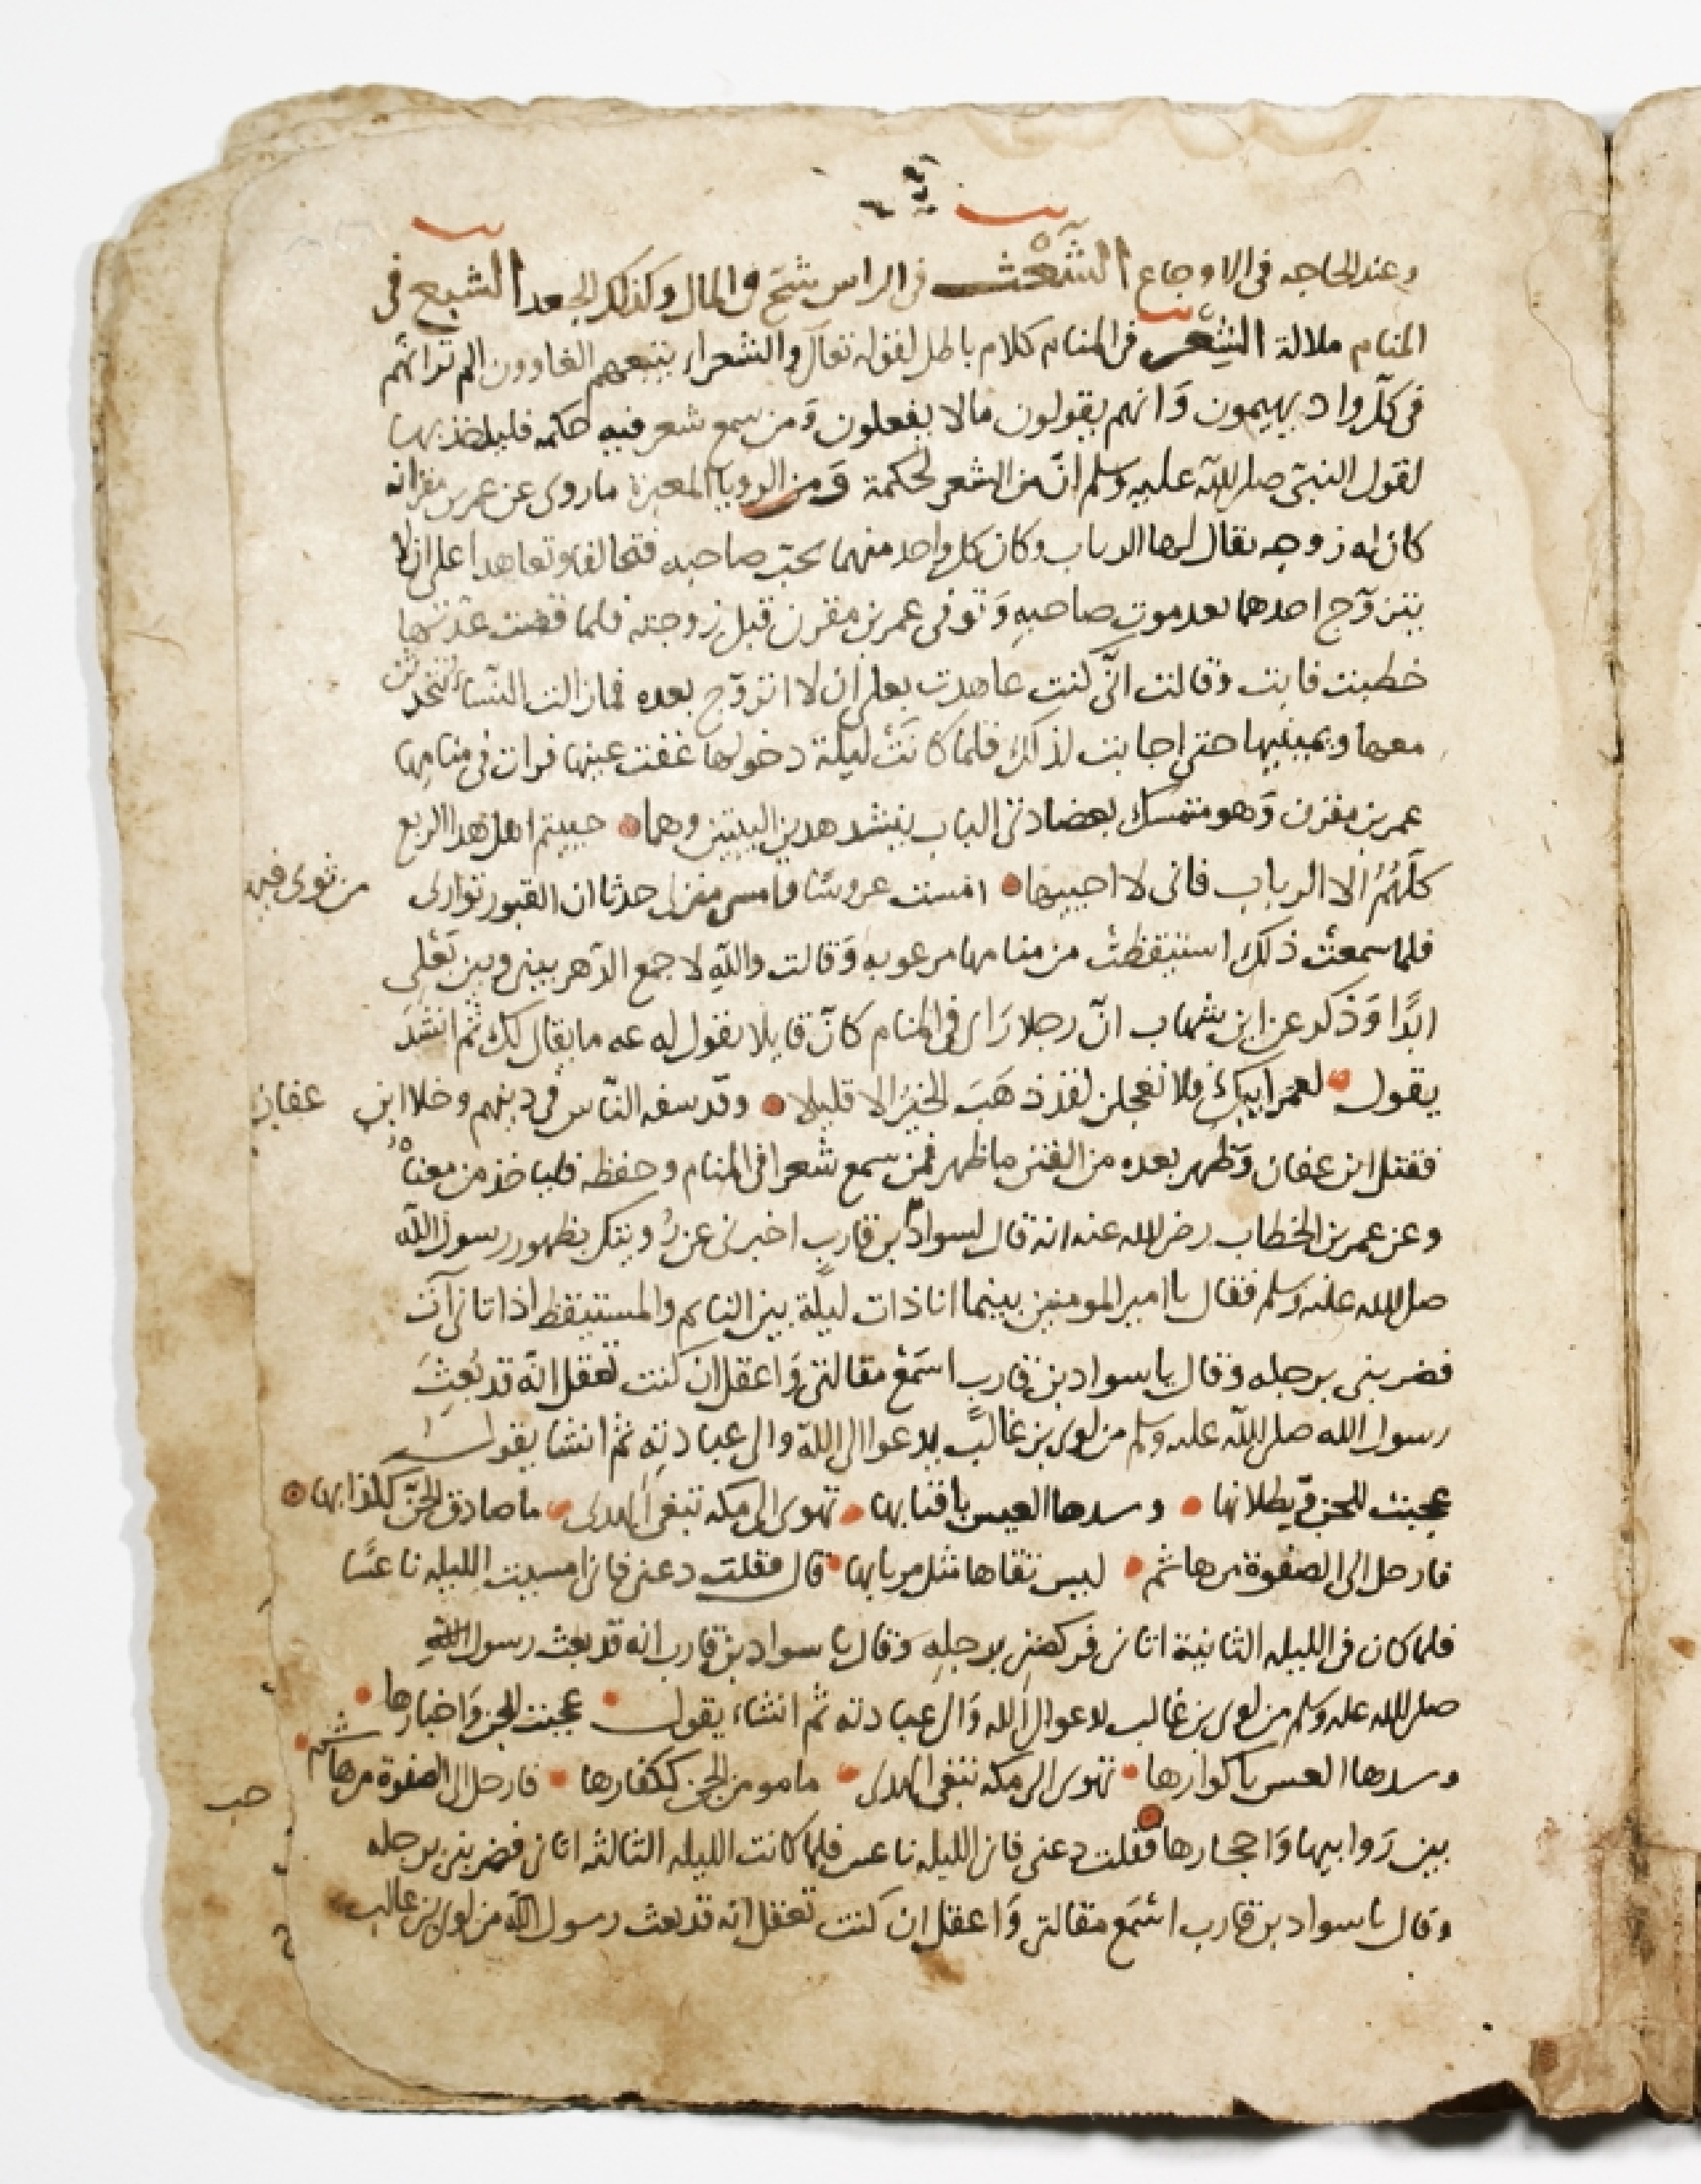 وعند الحاجه فى الاوجاع الشعث فى الراس شح فى المال وكذلك الجعد الشبع فى
المنام ملالة الشعر فى المنام كلام باطل لقوله تعالى والشعراء يتبعهم الغاوون الم تر انهم
فى كل واد يهيمون وَانهم يقولون مالا يفعلون وَمن سمع شعر فيه حكمه فلياخذ بها
لقول النبى صلى الله عليه وسلم انّ من الشعر لحكمة وَمن الرويا المعبرة ما روى عن عمر بن مقرن انه
كان له زوجه يقال لها الرباب وكان كل واحد منهما يحب صاحبه فتحالفا وتعاهدا على ان لا
يتزوّج احدهما بعد موت صاحبهِ وَتوفى عمر بن مقرن قبل زوجته فلما قضت عدتها
خطبت فابت وقالت انّى كنت عاهدت بعلى ان لا اتزوّج بعده فما زالت النّساء تتحدث
معها ويمنيها حتى اجابت لذلك فلما كانَتْ ليلة دخولها غفت عينها فرات فى منامها
عمر بن مقرن وَهو متمسك بعضادتى الباب ينشد هدين البيتين وهما حييتم اهل هدا الربع
كلّهُمُ الا الرباب فانى لا احييها امست عروسًا وامسى منزلى حدثا ان القبور توارى
من ثوى فيها
فلما سمعتْ ذلك استيقظتْ من منامها مرعوبه وَقالت واللهِ لا جمع الدّهر بينى وبين بَعْلى
ابدًا وَذكر عن ابن شهاب انّ رجلا رَاى فى المنام كانّ قايلا يقول له عه ما يقال لك ثم انشدَ
يقول لعمر ابيك فلا تعجلن لقد ذهَبَ الخيْرُ الا قليلا وقد سفه النّاس فى دينهم وخلا ابن عفان
فقتل ابن عفان وَظهر بعده من الفتن ما ظهر فمن سمع شعرا فى المنام وحفظه فلياخذ من معناهُ
وعن عمر بن الخطاب رضى الله عنه انه قال لسواد بن قارب اخبرنى عن رُويتك بظهور رسول الله
صلى الله عليه وسلم فقال يا امير المومنين بينما انا ذات ليلة بين النايم والمستيقظ اذ اتانى آت
فضربنى برجله وقال يا سواد بن قارب اسمَعْ مقالتى وَاعقل ان كنت تعقل انّه قد بُعِثَ
رسول الله صلى الله عليه وسلم من لوى بن غالب يدعوا الى الله والى عبادتهِ ثم انشا يقول
عجبت للجن وتطلابها وسدها العيس باقتابها تهوى الى مكه تبتغى الهدى ما صادق الجن ككذابها
فارحل الى الصفوة من هاشم ليس نقاها مثل مريابها قال فقلت دعنى فانى امسيت الليله ناعسًا
فلما كان فى الليله الثانية اتانى فركضنى برجلهِ وَقال يا سواد بن قارب انه قد بعث رسول اللهِ
صلى الله عليه وسلم من لوى بن غالب يدعو الى الله وَالى عبادته ثم انشاء يقول عجبت للجن وَاخبارها
وسدها العيس باكوارها تهوى الى مكه تبتغى الهدى ما مومن الجن ككفارها فارحل الى الصفوة من هاشم
بين رَوابيها وَاحجارها فقلت دعنى فانى الليله ناعس فلما كانت الليله الثالثه اتانى فضربنى برجله
وقال يا سواد بن قارب اسْمَع مقالتى وَاعقل ان كنت تعقل انه قد بعث رسول الله من لوى بن غالب